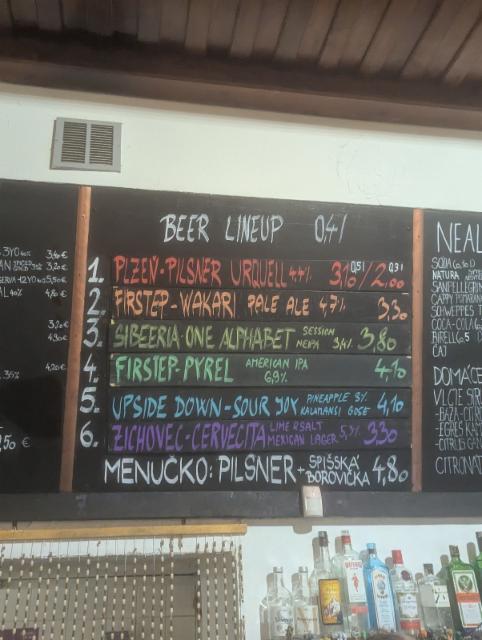 BEER LINEUP 0,4l
1. PLZEŇ-PILSNER URQUELL 4,4% 3,10 0,5l / 2,00 0,3l
2. FIRSTEP-WAKARI PALE ALE 4,7% 3,30
3. SIBEERIA-ONE ALPHABET SESSION NEIPA 3,4% 3,80
4. FIRSTEP-PYREL AMERICAN IPA 6,9% 4,10
5. UPSIDE DOWN-SOUR JOY PINEAPPLE KALAMANSI GOSE 3% 4,10
6. ZICHOVEC-CERVECITA LIME & SALT MEXICAN LAGER 5,3% 3,30
MENUČKO: PILSNER + SPIŠSKÁ BOROVIČKA 4,80
3,20€
4,20€
,50€
NEAL
SODA
NATURA
SANPELLEGRIN
CAPPY POMARAN
SCHWEPPES T
COCA-COLA
BIRELL
ČAJ
DOMÁCE
VLČIE SIR
-BAZA-CITRO
-EGREŠ
-CITRUS
CITRONÁ